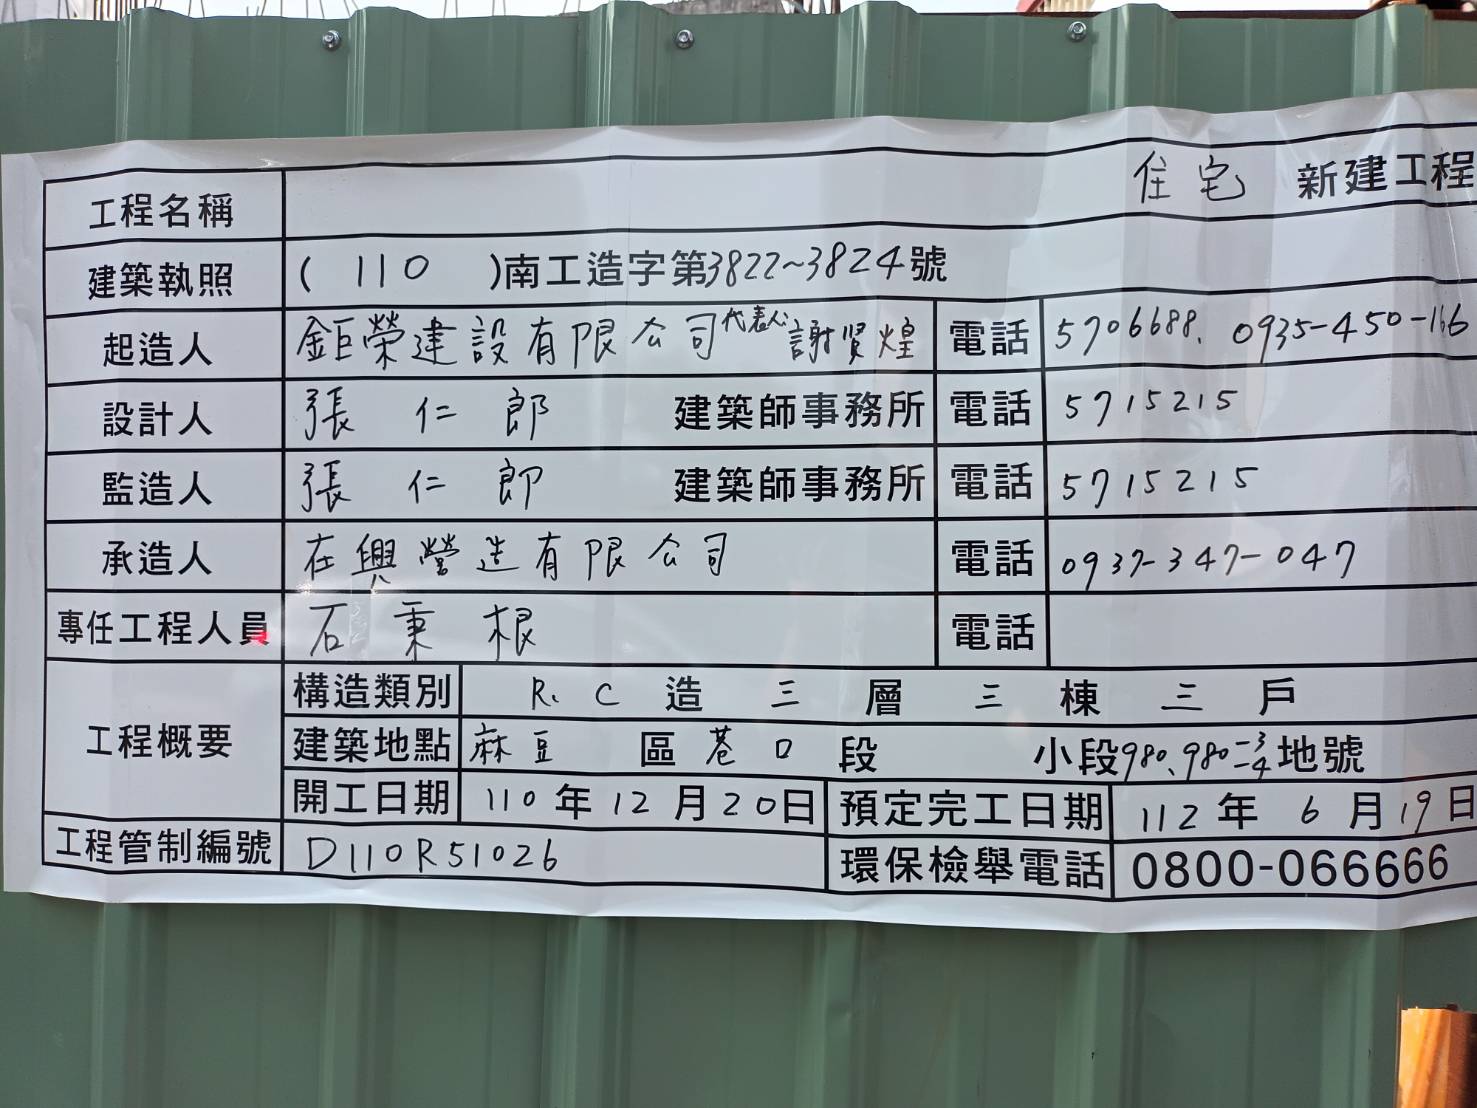 工程名稱 住宅 新建工程
建築執照 ( 110 )南工造字第3822~3824號
起造人 鉅榮建設有限公司代表人:謝賢煌 電話 5706688、0935-450-166
設計人 張仁郎 建築師事務所 電話 5715215
監造人 張仁郎 建築師事務所 電話 5715215
承造人 在興營造有限公司 電話 0937-347-047
專任工程人員 石秉根 電話
工程概要 構造類別 R.C造三層三棟三戶
建築地點 麻豆 區 巷口 段 小段980、980-3/-4地號
開工日期 110年12月20日 預定完工日期 112年6月19日
工程管制編號 D110R51026 環保檢舉電話 0800-066666